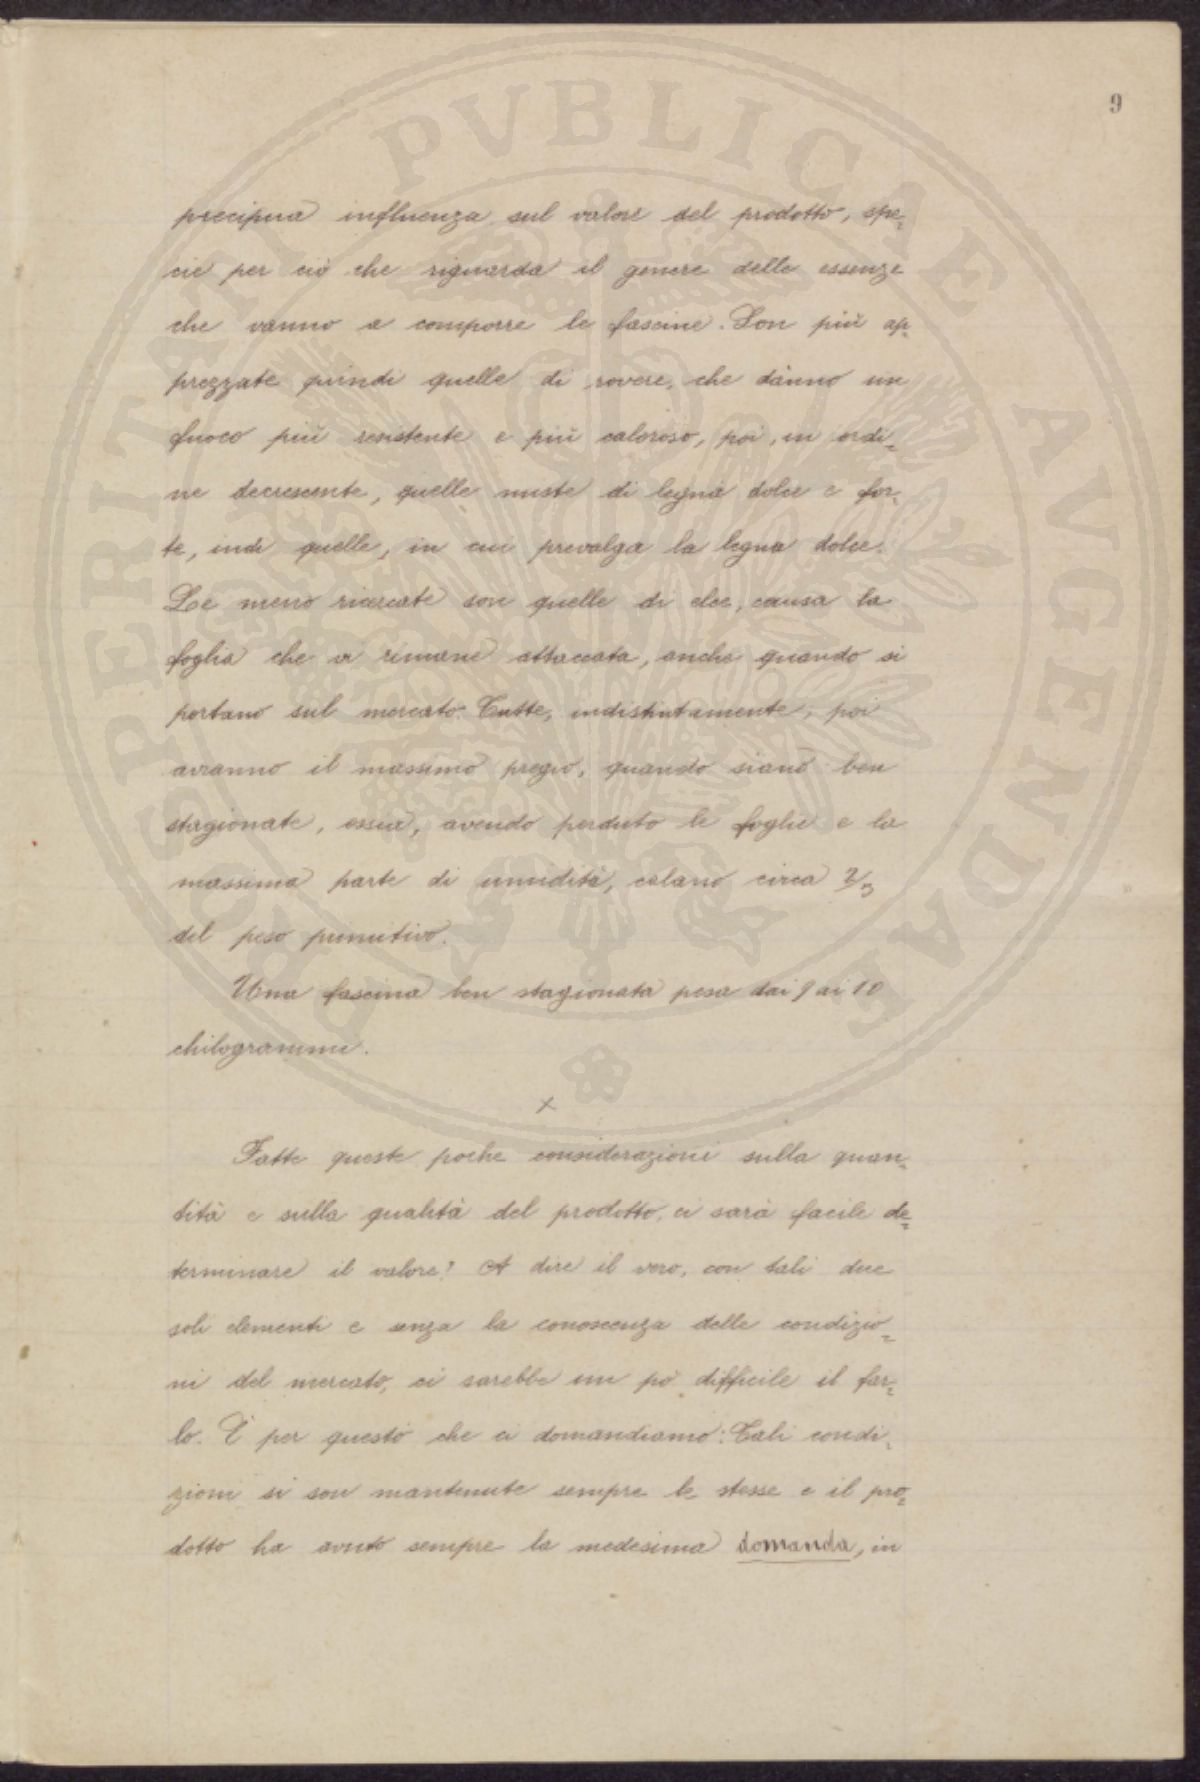 9
precipua influenza sul valore del prodotto, spe=
cie per ciò che riguarda il genere delle essenze
che vanno a comporre le fascine. Son più ap=
prezzate quindi quelle di rovere, che dànno un
fuoco più resistente e più caloroso, poi, in ordi=
ne decrescente, quelle miste di legna dolce e for=
te, indi quelle, in cui prevalga la legna dolce.
Le meno ricercate son quelle di elce, causa la
foglia che vi rimane attaccata, anche quando si
portano sul mercato. Tutte, indistintamente, poi
avranno il massimo pregio, quando siano ben
stagionate, ossia, avendo perduto le foglie e la
massima parte di umidità, calano circa 2/3
del peso primitivo.
Una fascina ben stagionata pesa dai 9 ai 10
chilogrammi.
x
Fatte queste poche considerazioni sulla quan=
tità e sulla qualità del prodotto, ci sarà facile de=
terminare il valore? A dire il vero, con tali due
soli elementi e senza la conoscenza delle condizio=
ni del mercato, ci sarebbe un pò difficile il far=
lo. È per questo che ci domandiamo: Tali condi=
zioni si son mantenute sempre le stesse e il pro=
dotto ha avuto sempre la medesima domanda, in
PROSPERITATI PVBLICAE AVGENDAE